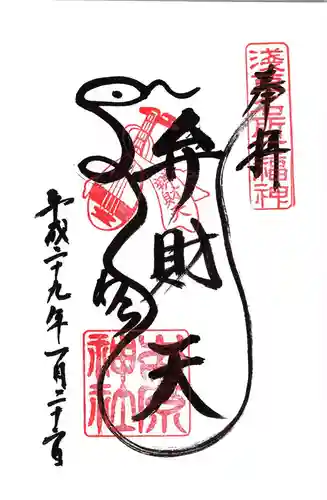 奉拝
淺草名所七福神
弁財天
吉原
神社
平成二十九年一月二十